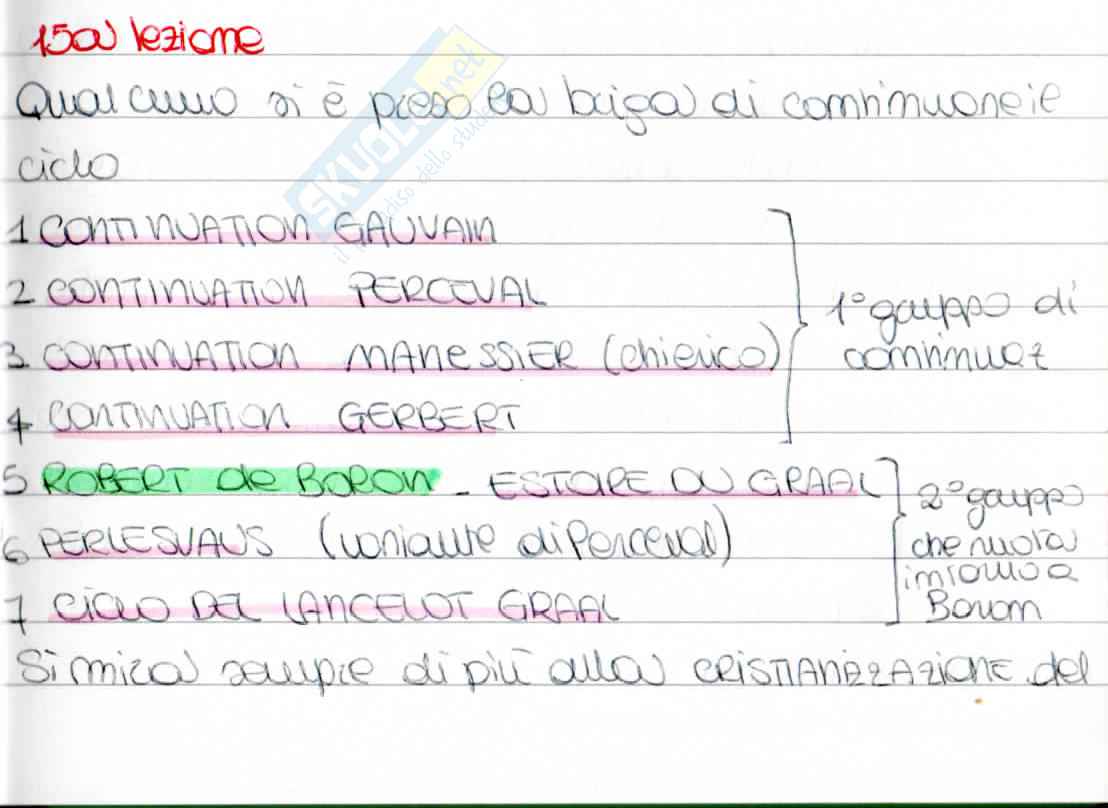 15a lezione
Qualcuno si è preso la briga di continuare il
ciclo
1 CONTINUATION GAUVAIN
2 CONTINUATION PERCEVAL
3 CONTINUATION MANESSIER (chierico)
4 CONTINUATION GERBERT
1° gruppo di
continuaz
5 ROBERT de BORON - ESTOIRE DU GRAAL
6 PERLESVAUS (variante di Perceval)
7 CICLO DEL LANCELOT GRAAL
2° gruppo
che ruota
intorno a
Boron
Si mira sempre di più alla CRISTIANIZZAZIONE del
SKUOLA.net
il paradiso dello stude